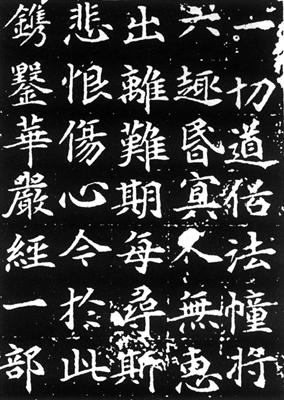 一切道俗法幢将
六趣昏冥人無惠
出離難期每尋斯
悲恨傷心今於此
鐫鑿華嚴經一部